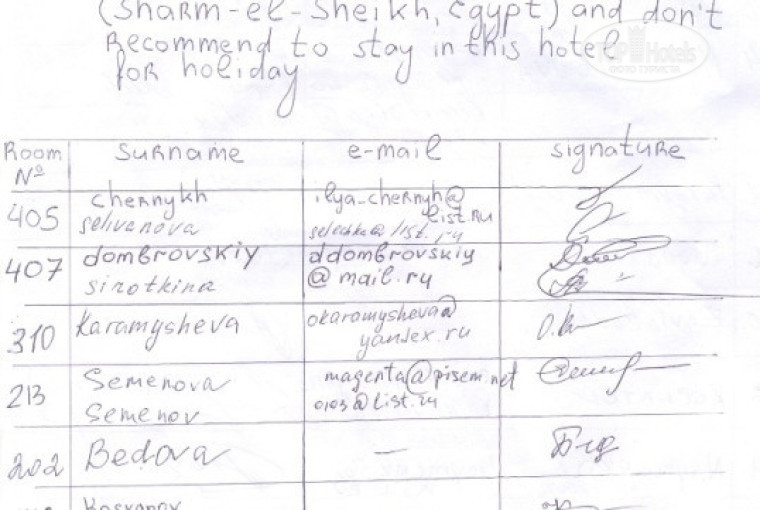 (Sharm-el-Sheikh, Egypt) and don't
Recommend to stay in this hotel
for holiday
TOP Hotels
ФОТО ТУРИСТА
Room № Surname e-mail signature
405 chernykh ilya-chernyh@list.ru
selivanova selechka@list.ru
407 dombrovskiy ddombrovskiy@mail.ru
sirotkina
310 Karamysheva okaramysheva@yandex.ru
213 Semenova magenta@pisem.net
Semenov 0103@list.ru
202 Bedova —